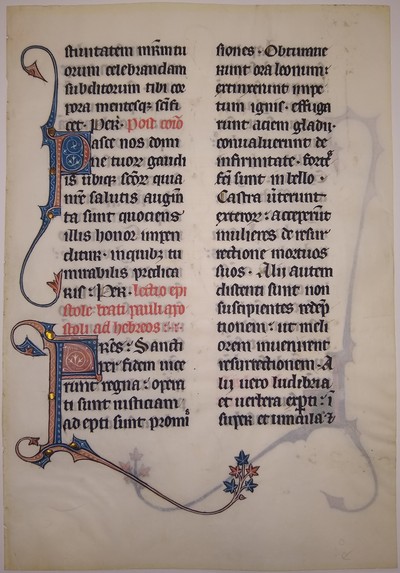 stiuitatem mr̄m tu
orum celebrandam
subditorum tibi cor
pora mentesq; scīfi
cet. Per. Post cōīō
Pasce nos domi
ne tuor̄ gaudi
is ubiq; scōr̄ quia
nr̄e salutis augm̄
ta sunt quociens
illis honor impen
ditur. in quib; tu
mirabilis predica
ris: Per. lectio epi
stole beati pauli apo
stoli ad hebreos
Fr̄es: Sancti
per fidem uice
runt regna: opera
ti sunt iusticiam
ad epti sunt promis
siones. Obturaue
runt ora leonum:
extinxerunt impe
tum ignis. effuga
runt aciem gladii.
conualuerunt de
infirmitate. fortes
fc̄i sunt in bello.
Castra uerterunt
exteror̄: acceper̄t
mulieres de resur
rectione mortuos
suos. Alii autem
distenti sunt non
suscipientes redēp
tionem: ut meli
orem inuenirent
resurrectionem. A
lii uero ludibria
et uerbera exp̄ti: ī
super et uincula ⁊